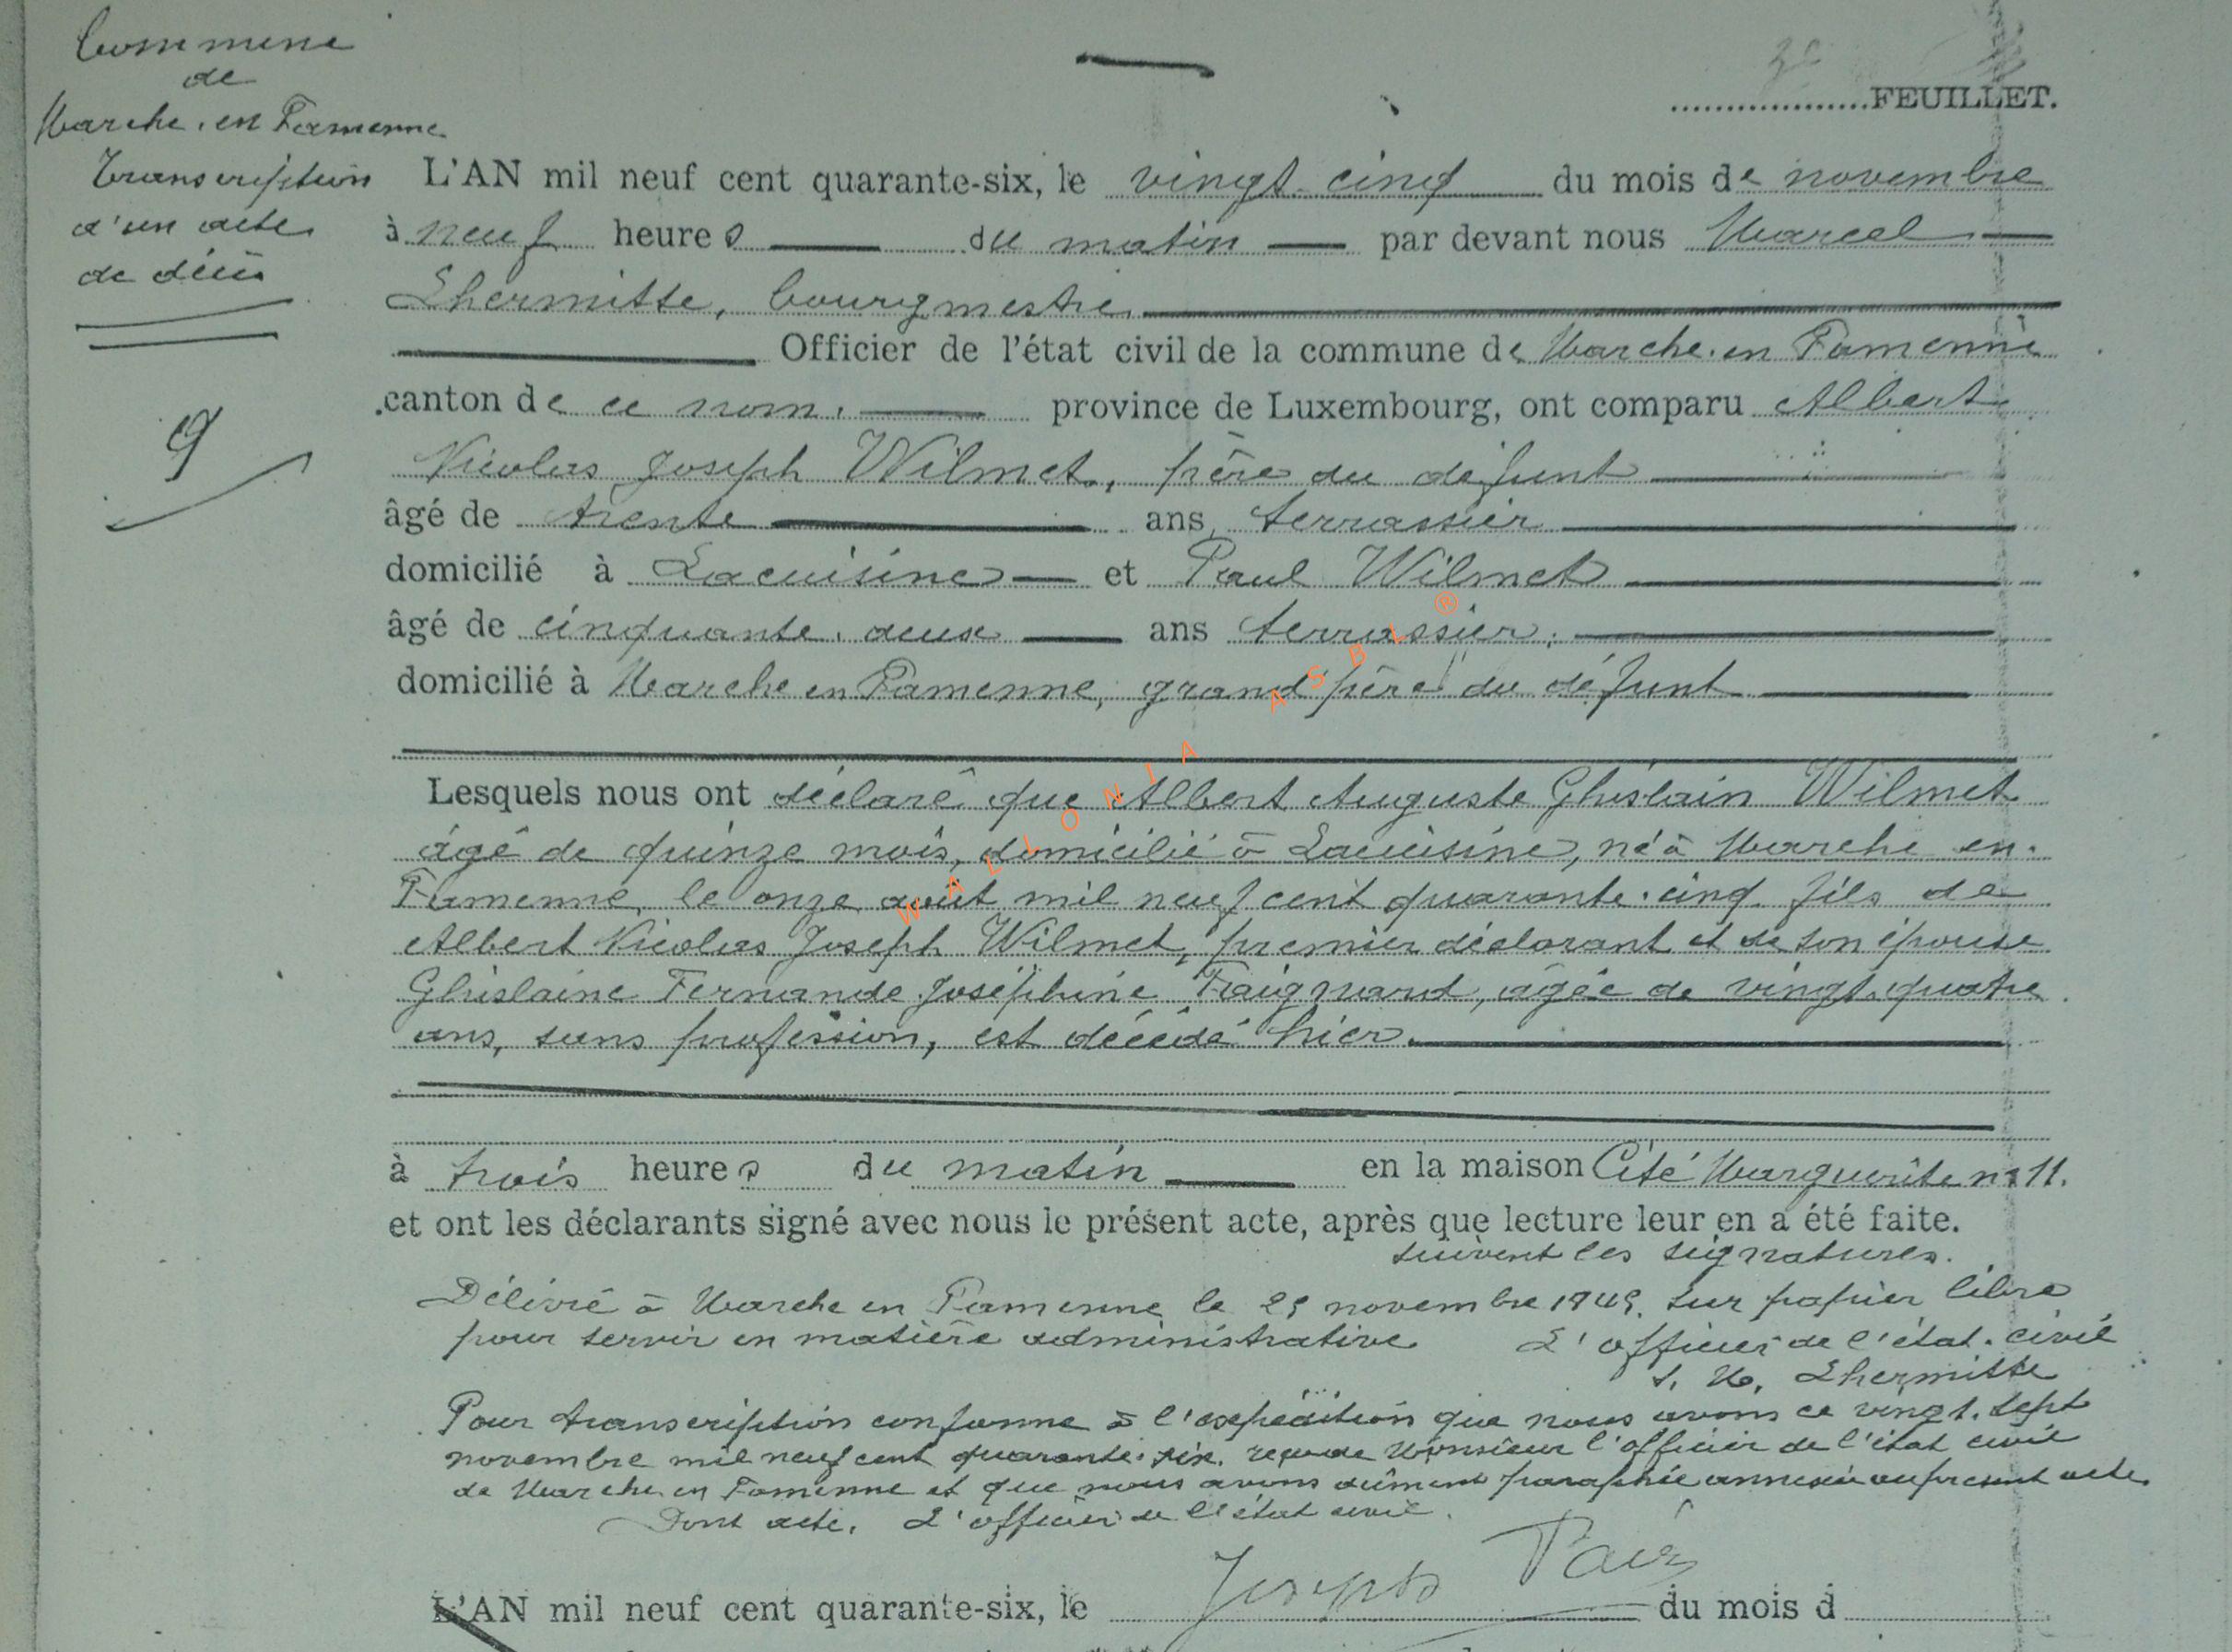 Commune
de
Marche-en Famenne
Transcription
d'un acte
de décès
9
FEUILLET.
L'AN mil neuf cent quarante-six, le vingt-cinq du mois de novembre
à neuf heures du matin par devant nous Marcel
Lhermitte, bourgmestre,
Officier de l'état civil de la commune de Marche-en Famenne
canton de ce nom, province de Luxembourg, ont comparu Albert
Nicolas Joseph Wilmet, père du défunt
âgé de trente ans, terrassier
domicilié à Lacuisine et Paul Wilmet
âgé de cinquante-deux ans terrassier,
domicilié à Marche en Famenne, grand père du défunt
Lesquels nous ont déclaré que Albert Auguste Ghislain Wilmet
âgé de quinze mois, domicilié à Lacuisine, né à Marche en-
Famenne, le onze août mil neuf cent quarante-cinq fils de
Albert Nicolas Joseph Wilmet, premier déclarant et de son épouse
Ghislaine Fernande Joséphine Traignard, âgée de vingt-quatre
ans, sans profession, est décédé hier.
à trois heures du matin en la maison Cité Marguerite n° 11.
et ont les déclarants signé avec nous le présent acte, après que lecture leur en a été faite.
suivent les signatures.
Délivré à Marche en Famenne le 25 novembre sur papier libre
pour servir en matière administrative L'officier de l'état-civil
s. M. Lhermitte
Pour transcription conforme à l'expédition que nous avons ce vingt-sept
novembre mil neuf cent quarante-six, reçu de Monsieur l'officier de l'état civil
de Marche en Famenne et que nous avons dûment paraphée annexée au présent acte.
Dont acte. L'officier de l'état civil.
Joseph
L'AN mil neuf cent quarante-six, le du mois d
WALLONIA ASBL ®